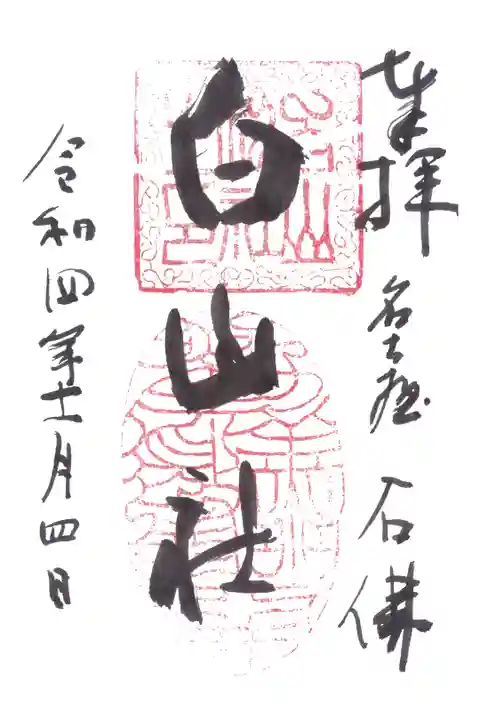 奉拝 名古屋 石佛
白山社
令和四年十一月四日